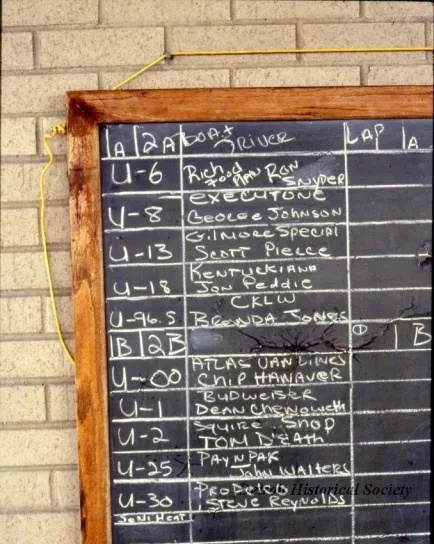 1A 2A BOAT DRIVER LAP 1A
U-6 Rich Food Man Ron Snyder
U-8 EXECUTONE
GEORGE JOHNSON
U-13 GILMORE SPECIAL
SCOTT PIERCE
U-18 KENTUCKIANA
JON PEDDIE
U-96.5 CKLW
BRENDA JONES
1B 2B 1 B
U-00 ATLAS VAN LINES
CHIP HANAUER
U-1 BUDWEISER
DEAN CHENOWETH
U-2 SQUIRE SHOP
TOM D'EATH
U-25 PAY N PAK
John WALTERS
U-30
STEVE REYNOLDS
Historical Society